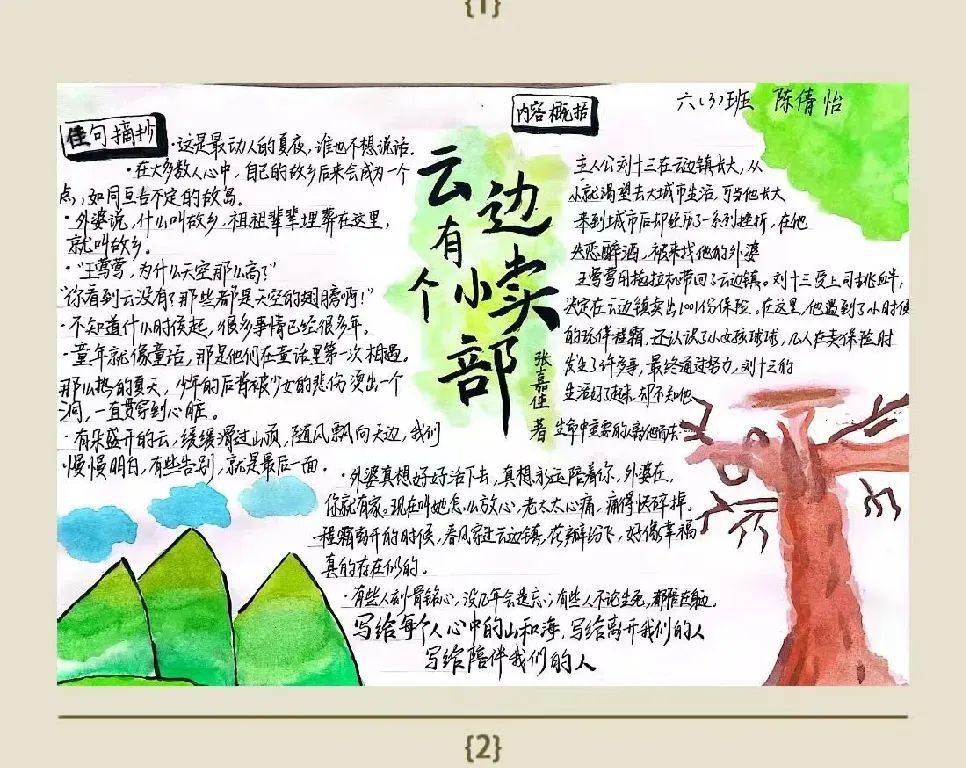 {1}
六(3)班 陈倩怡
佳句摘抄
·这是最动人的夏夜，谁也不想说话.
·在大多数人心中，自己的故乡后来会成为一个
点，如同亘古不变的故岛。
·外婆说，什么叫故乡，祖祖辈辈埋葬在这里，
就叫故乡。
·"王莺莺，为什么天空那么高？"
"你看到云没有？那些都是天空的翅膀啊！"
·不知道什么时侯起，很多事情已经很多年。
·童年就像童话，那是他们在童话里第一次相遇。
那么热的夏天，少年的后背被少女的悲伤烫出一个
洞，一直贯穿到心脏。
·有朵盛开的云，缓缓滑过山顶，随风飘向天边，我们
慢慢明白，有些告别，就是最后一面。
云边
有
个小卖
部
张嘉佳
著
内容概括
主人公刘十三在云边镇长大，从
小就渴望去大城市生活，可当他长大
来到城市后却经历了一系列挫折，在他
失恋醉酒，被来找他的外婆
王莺莺用拖拉机带回了云边镇。刘十三受上司挑衅，
决定在云边镇卖出1001份保险。在这里，他遇到了小时候
的玩伴程霜，还认识了小女孩球球，几人在卖保险时
发生了许多事，最终通过努力，刘十三的
生活好了起来，却不知他
生命中重要的人离他而去…
·外婆真想好好活下去，真想永远陪着你，外婆在，
你就有家。现在叫她怎么放心，老太太心痛，痛得快碎掉.
·程霜离开的时候，春风穿过云边镇，花瓣纷飞，好像幸福
真的存在似的。
·有些人刻骨铭心，没几年会遗忘；有些人不论生死，都陪在身边。
写给每个人心中的山和海，写给离开我们的人
写给陪伴我们的人
{2}